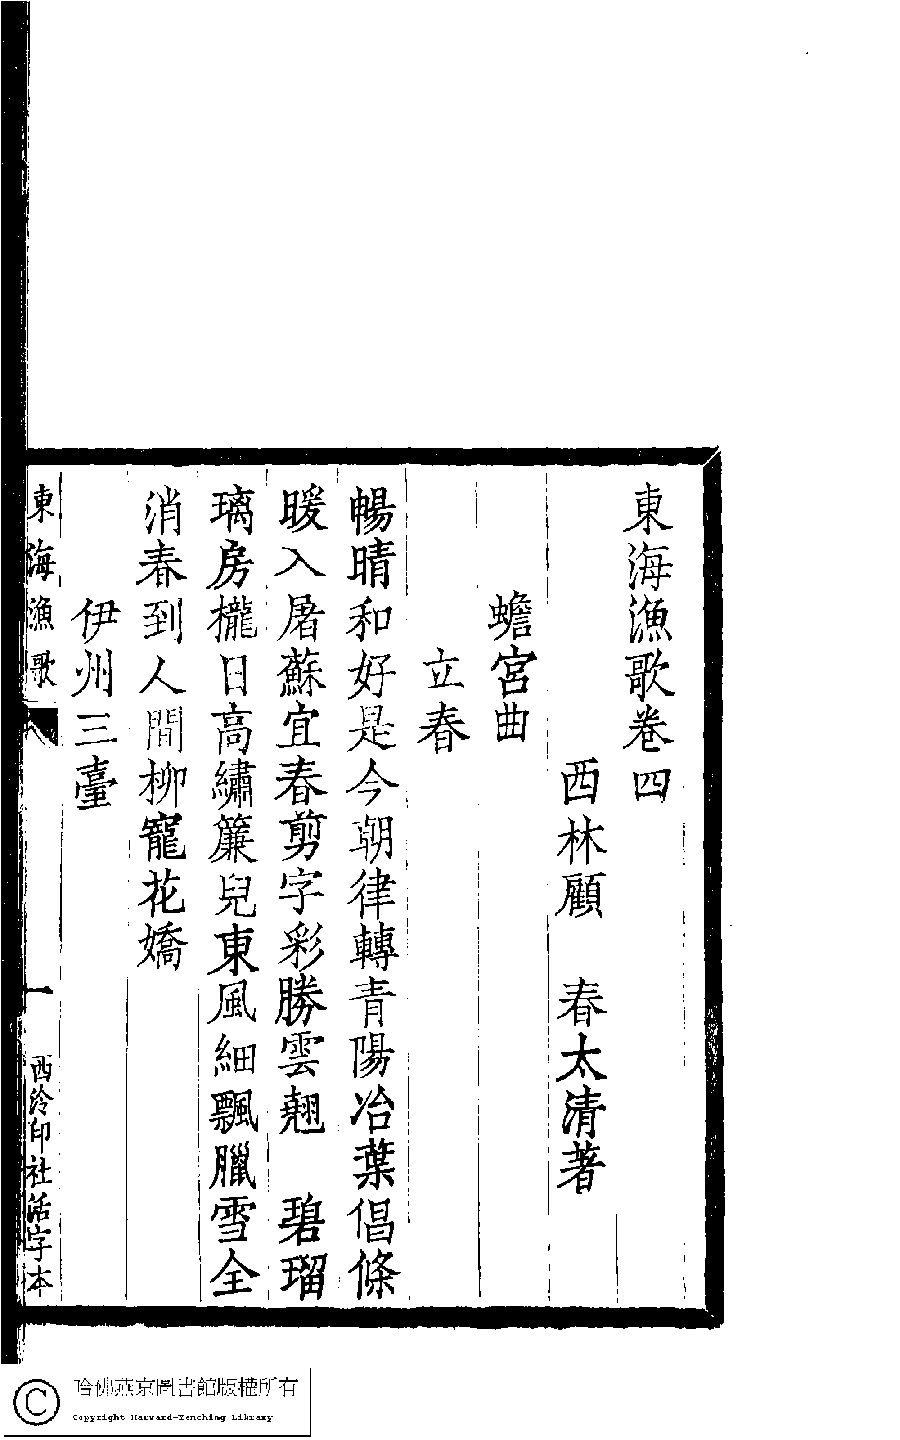 東海漁歌卷四
西林顧　春太清著
蟾宮曲
立春
暢晴和好是今朝律轉青陽冶葉倡條
暖入屠蘇宜春剪字彩勝雲翹　碧瑠
璃房櫳日高繡簾兒東風細飄臘雪全
消春到人間柳寵花嬌
伊州三臺
東海漁歌
一
西泠印社活字本
哈佛燕京圖書館版權所有
Copyright Harvard-Yenching Library